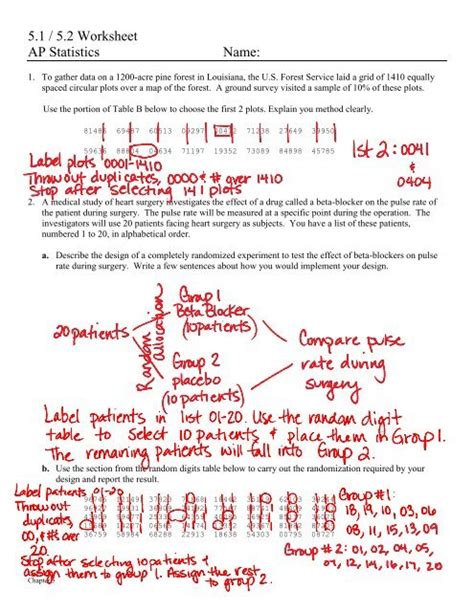 5.1 / 5.2 Worksheet
AP Statistics Name:
1. To gather data on a 1200-acre pine forest in Louisiana, the U.S. Forest Service laid a grid of 1410 equally
spaced circular plots over a map of the forest. A ground survey visited a sample of 10% of these plots.
Use the portion of Table B below to choose the first 2 plots. Explain you method clearly.
81486 69487 60513 09297 00412 71238 27649 39950
59636 88804 04634 71197 19352 73089 84898 45785
1st 2: 0041
&
0404
Label plots 0001-1410
Throw out duplicates, 0000 & # over 1410
Stop after selecting 141 plots
2. A medical study of heart surgery investigates the effect of a drug called a beta-blocker on the pulse rate of
the patient during surgery. The pulse rate will be measured at a specific point during the operation. The
investigators will use 20 patients facing heart surgery as subjects. You have a list of these patients,
numbered 1 to 20, in alphabetical order.
a. Describe the design of a completely randomized experiment to test the effect of beta-blockers on pulse
rate during surgery. Write a few sentences about how you would implement your design.
20 patients
Random allocation
Group 1
Beta Blocker
(10 patients)
Group 2
placebo
(10 patients)
Compare pulse
rate during
surgery
Label patients in list 01-20. Use the random digit
table to select 10 patients & place them in Group 1.
The remaining patients will fall into Group 2.
b. Use the section from the random digits table below to carry out the randomization required by your
design and report the result.
Label patients 01-20
Throw out
duplicates,
00, & #s over
20.
36759 58984 68288 22913 18638 54303 00795 08727
Stop after selecting 10 patients &
assign them to group 1. Assign the rest
to group 2.
Group #1:
18, 19, 10, 03, 06
08, 11, 15, 13, 09
Group #2: 01, 02, 04, 05,
07, 12, 14, 16, 17, 20